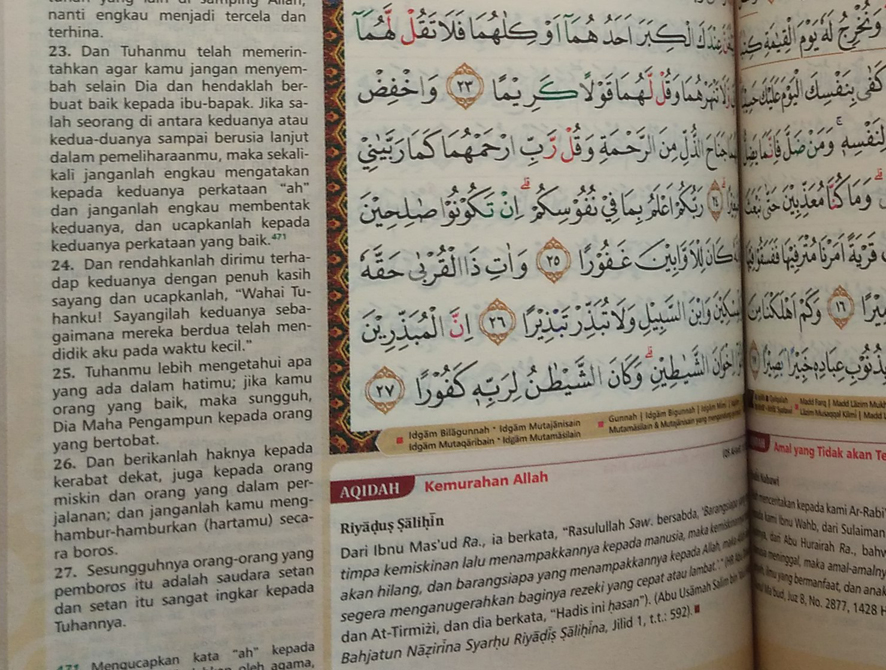 nanti engkau menjadi tercela dan
terhina.
23. Dan Tuhanmu telah memerin-
tahkan agar kamu jangan menyem-
bah selain Dia dan hendaklah ber-
buat baik kepada ibu-bapak. Jika sa-
lah seorang di antara keduanya atau
kedua-duanya sampai berusia lanjut
dalam pemeliharaanmu, maka sekali-
kali janganlah engkau mengatakan
kepada keduanya perkataan "ah"
dan janganlah engkau membentak
keduanya, dan ucapkanlah kepada
keduanya perkataan yang baik.⁴⁷¹
24. Dan rendahkanlah dirimu terha-
dap keduanya dengan penuh kasih
sayang dan ucapkanlah, "Wahai Tu-
hanku! Sayangilah keduanya seba-
gaimana mereka berdua telah men-
didik aku pada waktu kecil."
25. Tuhanmu lebih mengetahui apa
yang ada dalam hatimu; jika kamu
orang yang baik, maka sungguh,
Dia Maha Pengampun kepada orang
yang bertobat.
26. Dan berikanlah haknya kepada
kerabat dekat, juga kepada orang
miskin dan orang yang dalam per-
jalanan; dan janganlah kamu meng-
hambur-hamburkan (hartamu) seca-
ra boros.
27. Sesungguhnya orang-orang yang
pemboros itu adalah saudara setan
dan setan itu sangat ingkar kepada
Tuhannya.
471 Mengucapkan kata "ah" kepada
الْكِبَرَ اَحَدُهُمَآ اَوْ كِلٰهُمَا فَلَا تَقُلْ لَّهُمَآ
تَنْهَرْهُمَا وَقُلْ لَّهُمَا قَوْلًا كَرِيْمًا ٢٣ وَاخْفِضْ
جَنَاحَ الذُّلِّ مِنَ الرَّحْمَةِ وَقُلْ رَّبِّ ارْحَمْهُمَا كَمَا رَبَّيٰنِيْ
٢٤ رَبُّكُمْ اَعْلَمُ بِمَا فِيْ نُفُوْسِكُمْ ۗ اِنْ تَكُوْنُوْا صٰلِحِيْنَ
كَانَ لِلْاَوَّابِيْنَ غَفُوْرًا ٢٥ وَاٰتِ ذَا الْقُرْبٰى حَقَّهٗ
وَابْنَ السَّبِيْلِ وَلَا تُبَذِّرْ تَبْذِيْرًا ٢٦ اِنَّ الْمُبَذِّرِيْنَ
اِخْوَانَ الشَّيٰطِيْنِ ۗ وَكَانَ الشَّيْطٰنُ لِرَبِّهٖ كَفُوْرًا ٢٧
Idgām Bilāgunnah • Idgām Mutajānisain
Idgām Mutaqāribain • Idgām Mutamāsilain
Gunnah | Idgām Bigunnah | Idgām Mimi
Mutamāsilain & Mutajānisain yang
AQIDAH Kemurahan Allah
Riyāḍuṣ Ṣāliḥīn
Dari Ibnu Mas'ud Ra., ia berkata, "Rasulullah Saw. bersabda, 'Barangsiapa
timpa kemiskinan lalu menampakkannya kepada manusia, maka
akan hilang, dan barangsiapa yang menampakkannya kepada Allah, maka
segera menganugerahkan baginya rezeki yang cepat atau lambat.'"
dan At-Tirmiżi, dan dia berkata, "Hadis ini ḥasan"). (Abu Usāmah Salīm bin
Bahjatun Nāẓirīna Syarḥu Riyāḍiṣ Ṣāliḥīna, Jilid 1, t.t.: 592).
وَنُخْرِجُ لَهٗ يَوْمَ الْقِيٰمَةِ
كَفٰى بِنَفْسِكَ الْيَوْمَ عَلَيْكَ
لِنَفْسِهٖ ۚ وَمَنْ ضَلَّ فَاِنَّمَا
وَمَا كُنَّا مُعَذِّبِيْنَ حَتّٰى
قَرْيَةً اَمَرْنَا مُتْرَفِيْهَا فَفَسَقُوْا
١٦ وَكَمْ اَهْلَكْنَا مِنَ
بِذُنُوْبِ عِبَادِهٖ خَبِيْرًا بَصِيْرًا
Amal yang Tidak akan Te
mencentakan kepada kami Ar-Rabi'
kami Ibnu Wahb, dari Sulaiman
dari Abu Hurairah Ra., bahw
meninggal, maka amal-amalny
ilmu yang bermanfaat, dan anak
Juz 8, No. 2877, 1428 H